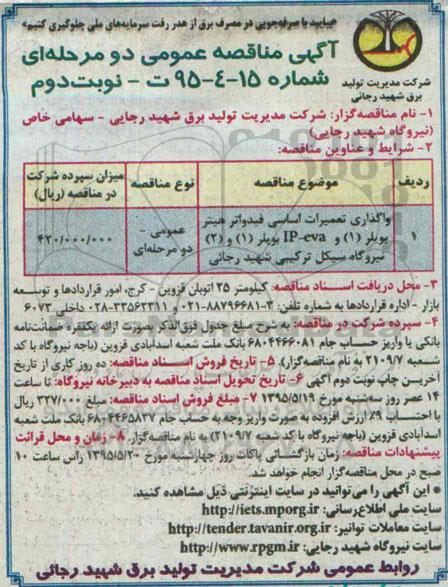 «بیایید با صرفه‌جویی در مصرف برق از هدر رفت سرمایه‌های ملی جلوگیری کنیم»
آگهی مناقصه عمومی دو مرحله‌ای
شماره ۱۵-۴-۹۵ ت - نوبت‌دوم
شرکت مدیریت تولید
برق شهید رجائی
۱- نام مناقصه‌گزار: شرکت مدیریت تولید برق شهید رجایی - سهامی خاص
(نیروگاه شهید رجایی)
۲- شرایط و عناوین مناقصه:
ردیف موضوع مناقصه نوع مناقصه میزان سپرده شرکت در مناقصه (ریال)
۱ واگذاری تعمیرات اساسی فیدواتر هیتر بویلر (۱) و IP-eva بویلر (۱) و (۲) نیروگاه سیکل ترکیبی شهید رجائی عمومی - دو مرحله‌ای ۴۲۰/۰۰۰/۰۰۰
۳- محل دریافت اسناد مناقصه: کیلومتر ۲۵ اتوبان قزوین - کرج، امور قراردادها و توسعه
بازار - اداره قراردادها به شماره تلفن: ۳-۸۸۷۹۶۶۸۱-۰۲۱ و ۳۳۵۶۲۳۱۱-۰۲۸ داخلی ۶۰۷۳
۴- سپرده شرکت در مناقصه: به شرح مبلغ جدول فوق‌الذکر بصورت ارائه یکفقره ضمانت‌نامه
بانکی یا واریز حساب جام ۶۸۰۴۴۶۶۰۸۱ بانک ملت شعبه اسدآبادی قزوین (باجه نیروگاه با کد
شعبه ۲۱۰۹/۷ به نام مناقصه‌گزار). ۵- تاریخ فروش اسناد مناقصه: ده روز کاری از تاریخ
آخرین چاپ نوبت دوم آگهی ۶- تاریخ تحویل اسناد مناقصه به دبیرخانه نیروگاه: تا ساعت
۱۴ عصر روز سه‌شنبه مورخ ۱۳۹۵/۵/۱۹ ۷- مبلغ فروش اسناد مناقصه: مبلغ ۳۲۷/۰۰۰ ریال
با احتساب ۹٪ ارزش افزوده به صورت واریز وجه به حساب جام ۶۸۰۴۴۶۵۸۳۷ بانک ملت شعبه
اسدآبادی قزوین (باجه نیروگاه با کد شعبه ۲۱۰۹/۷) به نام مناقصه‌گزار. ۸- زمان و محل قرائت
پیشنهادات مناقصه: زمان بازگشائی پاکات روز چهارشنبه مورخ ۱۳۹۵/۵/۲۰ راس ساعت ۱۰
صبح در محل مناقصه‌گزار انجام خواهد شد.
* این آگهی را می‌توانید در سایت اینترنتی ذیل مشاهده کنید.
سایت ملی اطلاع‌رسانی: http://iets.mporg.ir
سایت معاملات توانیر: http://tender.tavanir.org.ir
سایت نیروگاه شهید رجایی: http://www.rpgm.ir
روابط عمومی شرکت مدیریت تولید برق شهید رجائی